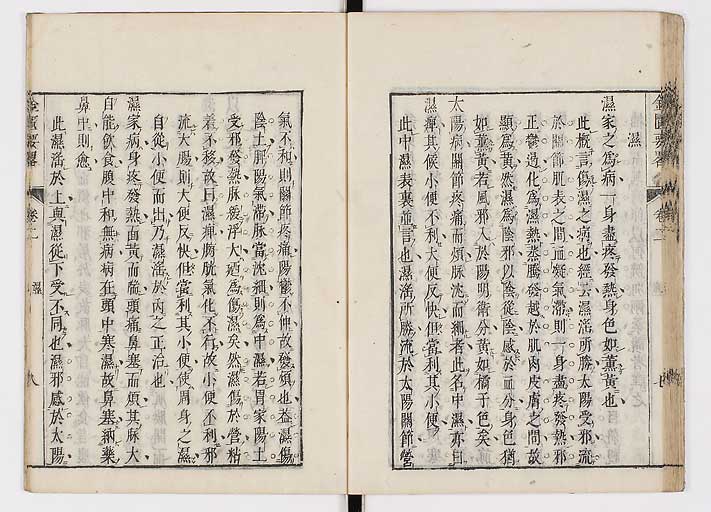 濕
濕家之爲病一身盡疼發熱身色如薰黃也
此槪言傷濕之病也經云濕淫所勝太陽受邪流
於關節肌表之間而礙氣滯則一身盡疼發熱邪
正鬱造化爲濕熱蒸騰發越於肌肉皮膚之間故
顯爲黃然濕爲陰邪以陰從陰感於而分身色猶
如薰黃若風邪入於陽明衛分黃如橘子色矣
太陽病關節疼痛而煩脉沈而細者此名中濕亦曰
濕痺其候小便不利大便反快但當利其小便
此中濕表裏兼言也濕淫所勝流於太陽關節營
氣不和則關節疼痛陽鬱不伸故發煩也蓋濕傷
陰土脾陽氣滯脉當沈細則爲中濕若胃家陽土
受邪發熱脉緩浮大道爲傷濕矣然濕傷於營粘
着不移故曰濕痺膀胱氣化不行故小便不利邪
流大腸則大便反快但當利其小便使周身之濕
自從小便而出乃濕淫於內之正治也
濕家病身疼發熱面黃而喘頭痛鼻塞而煩其脉大
自能飲食腹中和無病病在頭中寒濕故鼻塞納藥
鼻中則愈
此濕淫於上與濕從下受不同也濕邪感於太陽
金匱要畧
卷二
濕
八